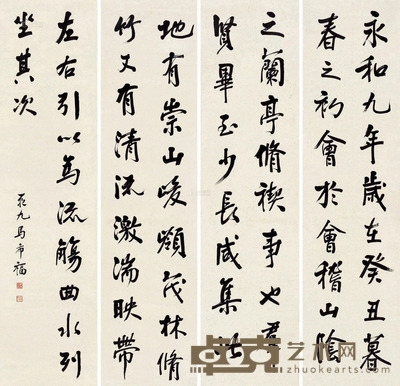 永和九年歲在癸丑暮
春之初會於會稽山陰
之蘭亭脩禊事也羣
賢畢至少長咸集此
地有崇山峻嶺茂林脩
竹又有清流激湍映帶
左右引以為流觴曲水列
坐其次
九馬福
卓克艺术网